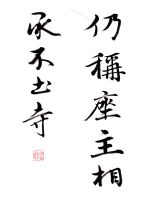 仍稱座主相
承不出寺